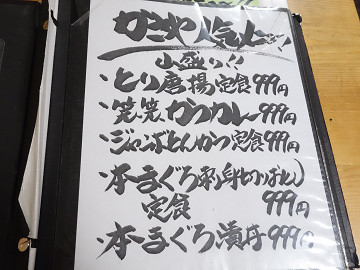 かごや人気メニュー
山盛り!!
・とり唐揚定食999円
・笑笑カツカレー999円
・ジャンボとんかつ定食999円
・本まぐろ刺身(切りおとし)
定食 999円
・本まぐろ漬丼999円